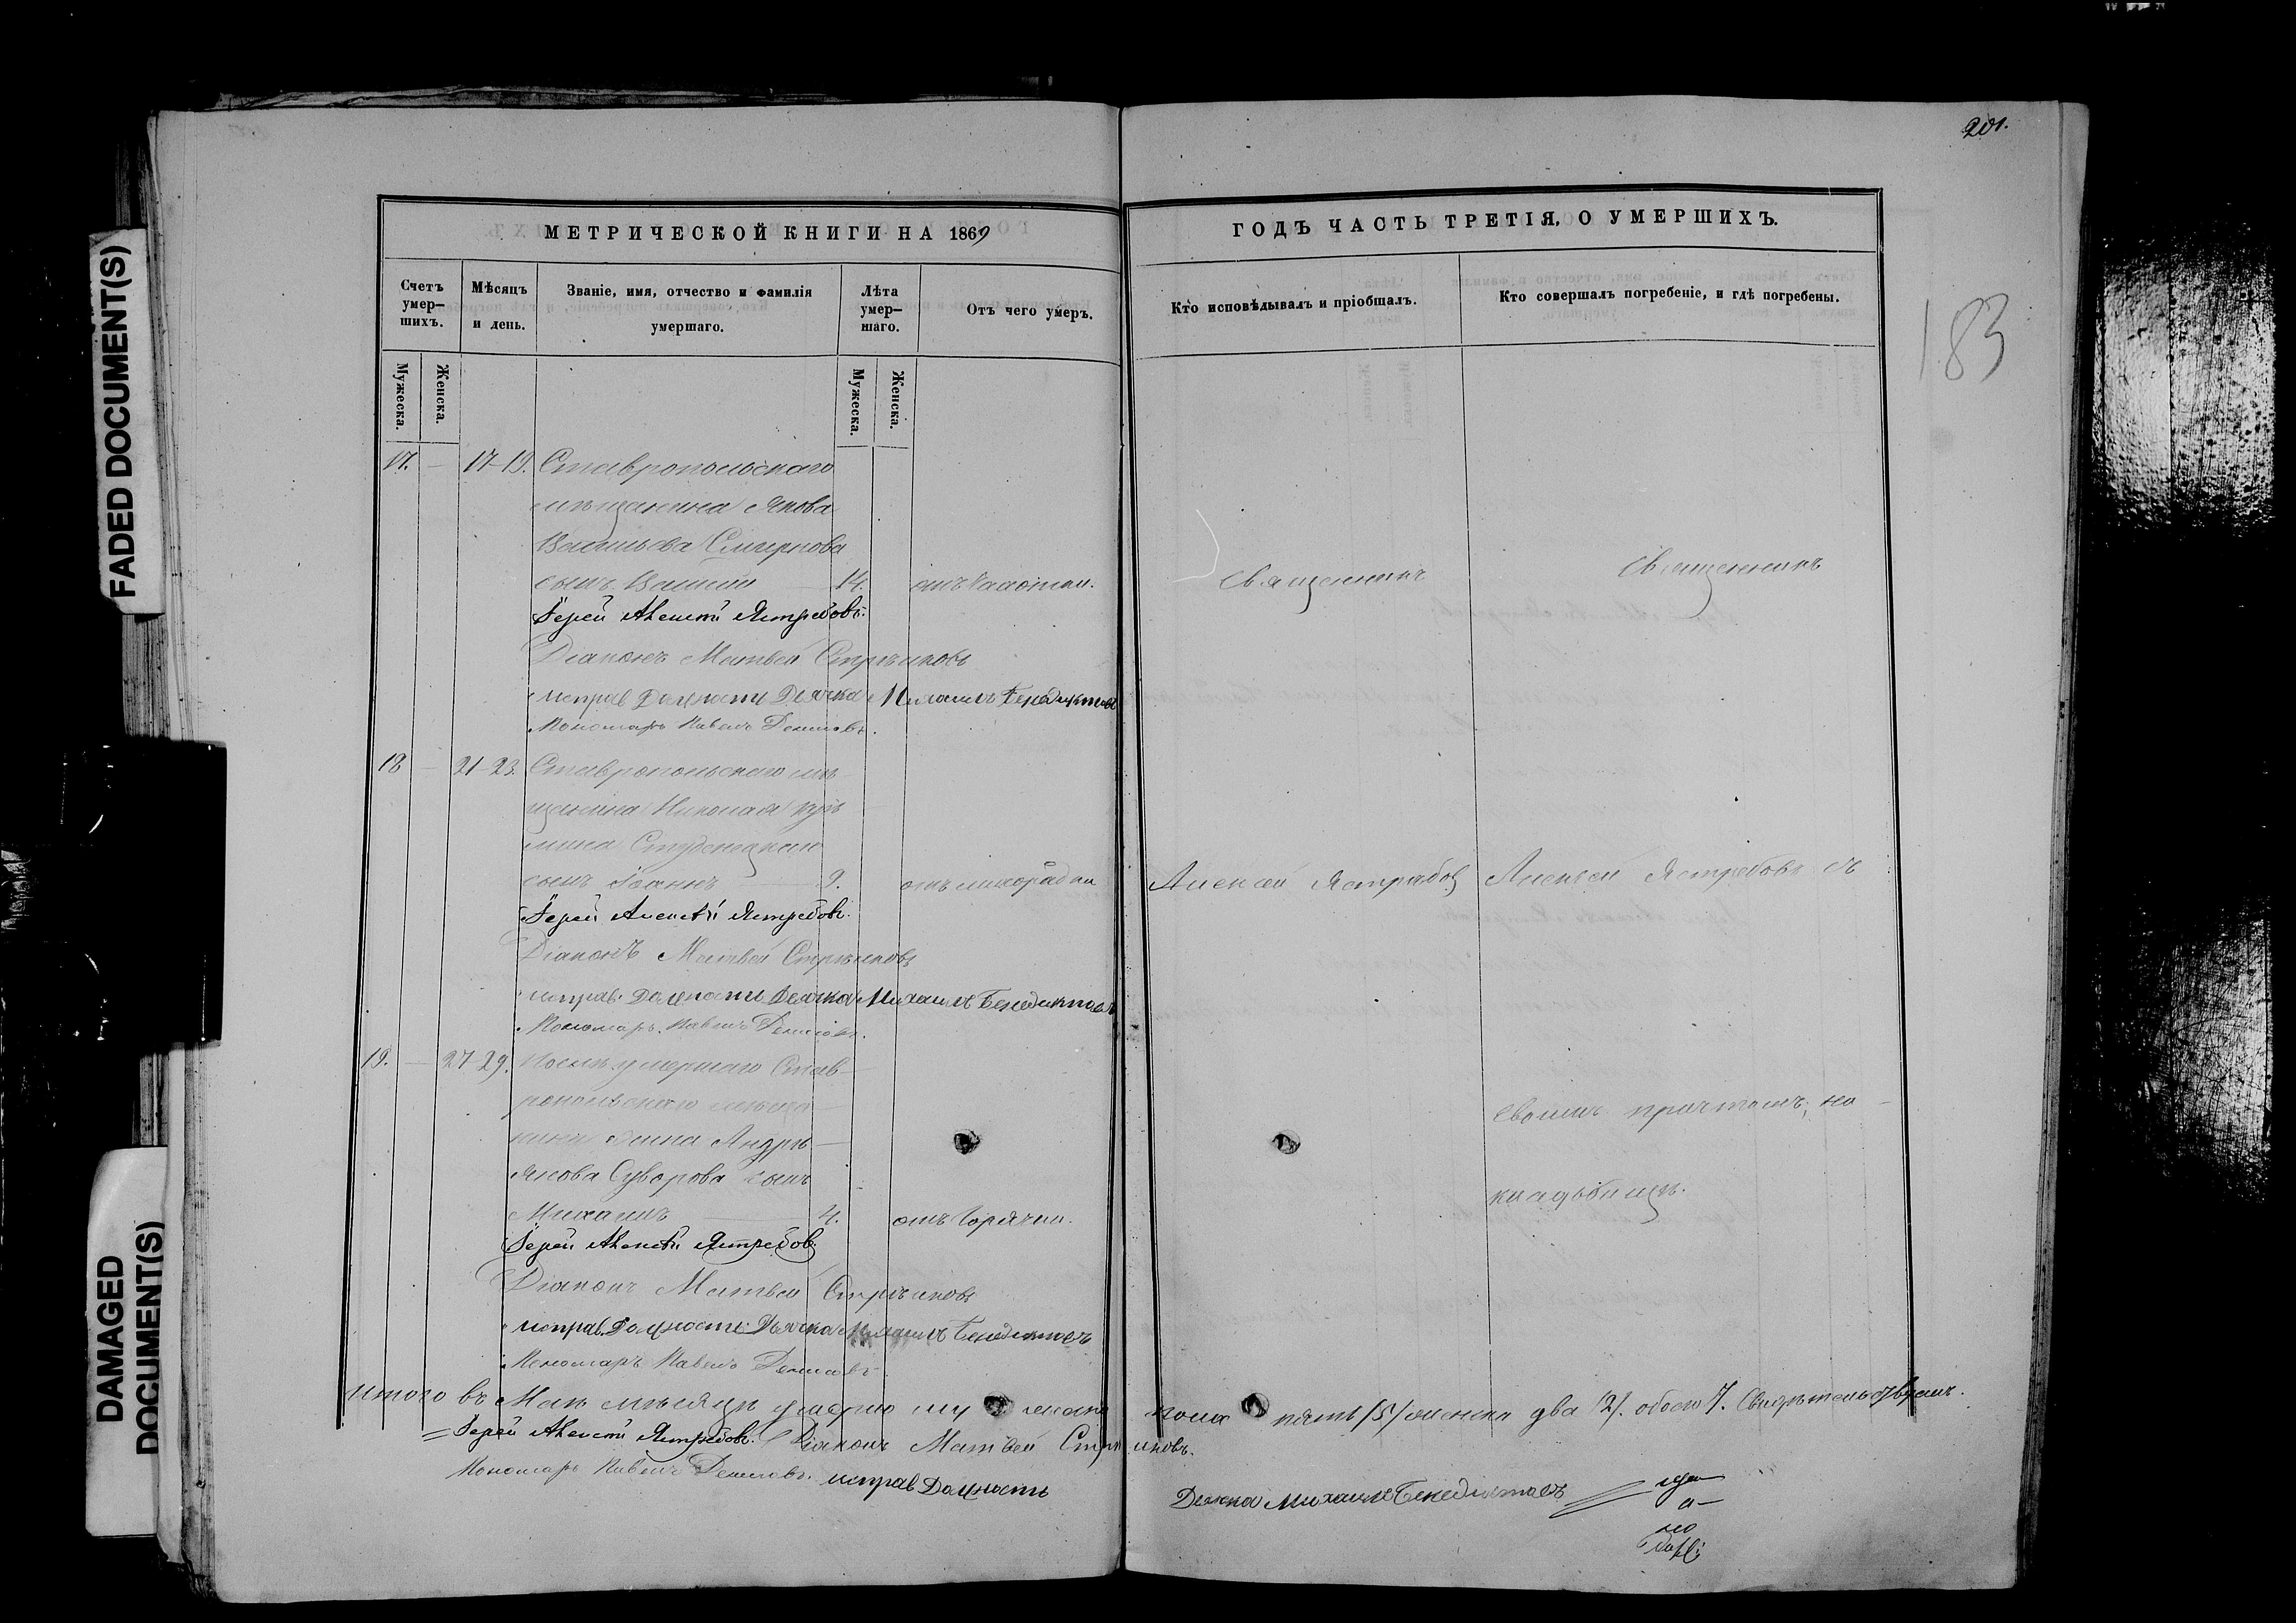 FADED DOCUMENT(S)
DAMAGED DOCUMENT(S)
201.
183
МЕТРИЧЕСКОЙ КНИГИ НА 1869
ГОДЪ ЧАСТЬ ТРЕТІЯ, О УМЕРШИХЪ.
Счетъ умер-шихъ.
Мѣсяцъ и день.
Званіе, имя, отчество и фамилія умершаго.
Лѣта умер-шаго.
Отъ чего умеръ.
Кто исповѣдывалъ и пріобщалъ.
Кто совершалъ погребеніе, и гдѣ погребены.
Мужеска.
Женска.
Мужеска.
Женска.
17. — 17-19. Ставропольскаго
мѣщанина Якова
Васильева Смирнова
сынъ 14. отъ
Священникъ
Священникъ
Іерей Алексѣй Ястребовъ.
Діаконъ Матвей
исправ. Должность Дьячка Михаилъ Бенедиктовъ
Пономарь Павелъ
18 — 21-23. Ставропольскаго мѣ
щанина Николая Кузь
мина
сынъ Іоаннъ — 9. отъ лихорадки
Алексѣй Ястребовъ
Алексѣй Ястребовъ съ
Іерей Алексѣй Ястребовъ.
Діаконъ Матвей
исправ. Должность Дьячка Михаилъ Бенедиктовъ
Пономарь Павелъ
19. — 27-29. Послѣ умершаго Став-
ропольскаго мѣща-
нина
Суворова сынъ
Михаилъ — 4. отъ Горячки.
своимъ причтомъ, на
кладбищѣ.
Іерей Алексѣй Ястребовъ
Діаконъ Матвей
исправ. Должность Дьячка Михаилъ Бенедиктовъ
Пономарь Павелъ
Итого въ Маѣ мѣсяцѣ умерло
пола пять /5/ женска два /2/. обоего 7. Свидѣтельствуемъ.
Іерей Алексѣй Ястребовъ. Діаконъ Матвей
Пономарь Павелъ исправ Должность
Дьячка Михаилъ Бенедиктовъ